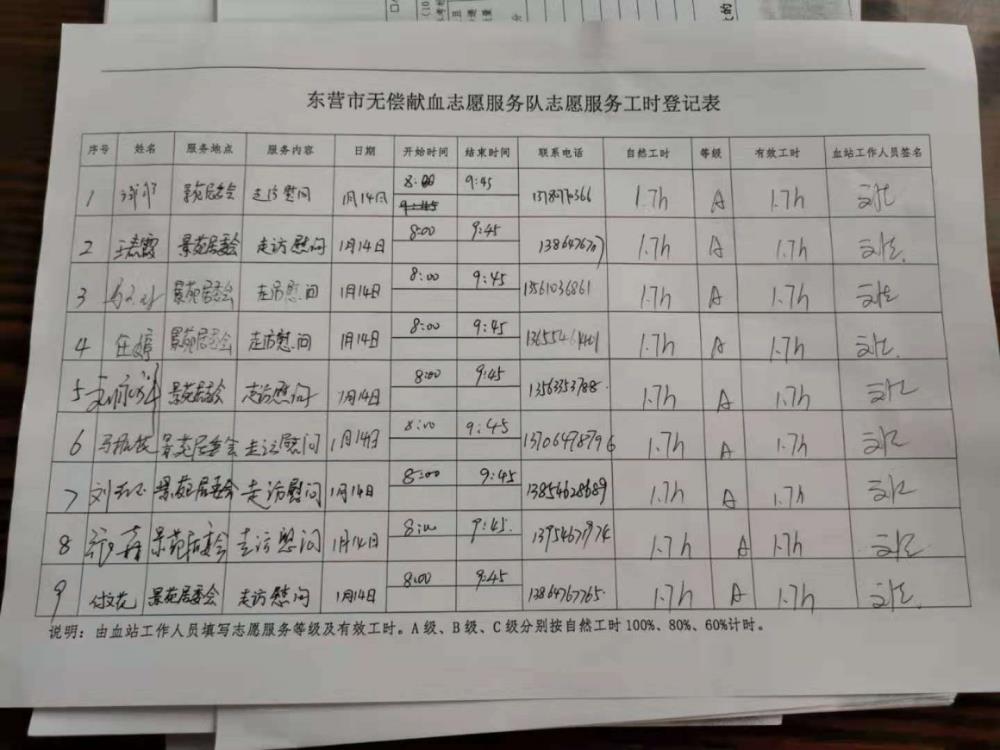 东营市无偿献血志愿服务队志愿服务工时登记表
序号 姓名 服务地点 服务内容 日期 开始时间 结束时间 联系电话 自然工时 等级 有效工时 血站工作人员签名
1 景苑居委会 走访慰问 1月14日 8:00 9:45 1.7h A 1.7h
9:45
2 景苑居委会 走访慰问 1月14日 8:00 9:45 1.7h A 1.7h
3 景苑居委会 走访慰问 1月14日 8:00 9:45 13561036861 1.7h A 1.7h
4 任婷 景苑居委会 走访慰问 1月14日 8:00 9:45 1.7h A 1.7h
5 景苑居委会 走访慰问 1月14日 8:00 9:45 13563353788 1.7h A 1.7h
6 景苑居委会 走访慰问 1月14日 8:00 9:45 13706478796 1.7h A 1.7h
7 景苑居委会 走访慰问 1月14日 8:00 9:45 13854628689 1.7h A 1.7h
8 景苑居委会 走访慰问 1月14日 8:00 9:45. 13954671974 1.7h A 1.7h
9 付文花 景苑居委会 走访慰问 1月14日 8:00 9:45 13864767765. 1.7h A 1.7h
说明：由血站工作人员填写志愿服务等级及有效工时。A级、B级、C级分别按自然工时100%、80%、60%计时。